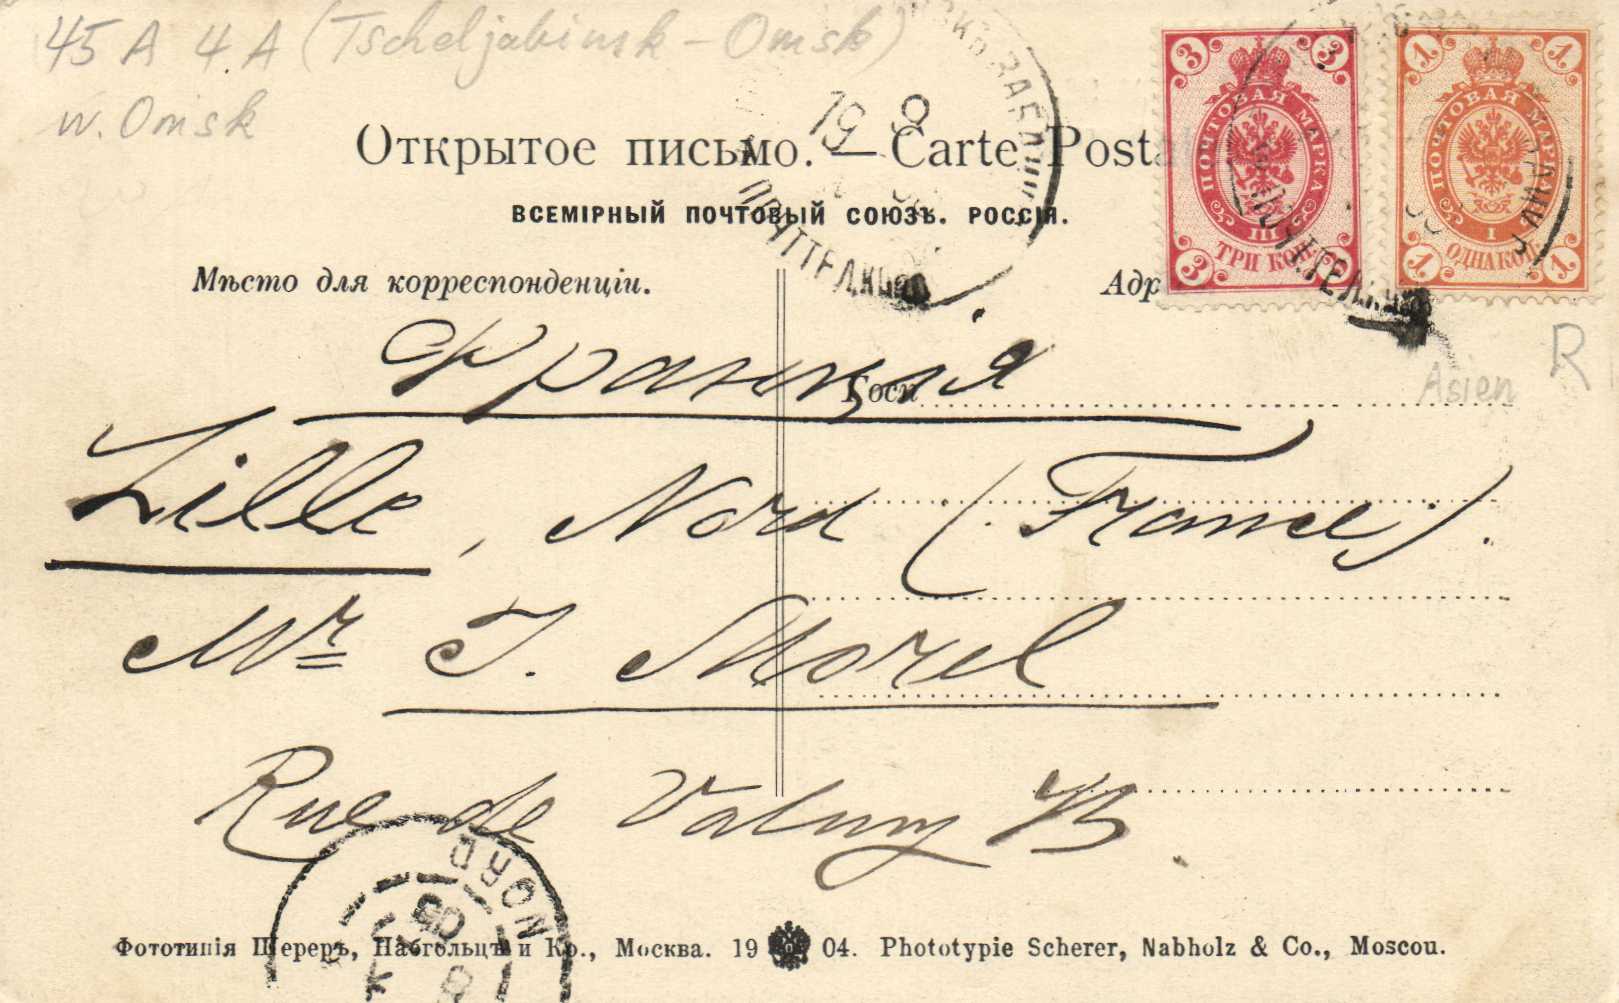 45 A 4.A (Tscheljabinsk - Omsk)
w. Omsk
19 8
Открытое письмо. — Carte Posta
ВСЕМІРНЫЙ ПОЧТОВЫЙ СОЮЗЪ. РОССІЯ.
Мѣсто для корреспонденціи.
Адр
3 3
ПОЧТОВАЯ МАРКА
III
ТРИ КОП.
3 3
1 1
ПОЧТОВАЯ МАРКА
I
ОДНА КОП.
1 1
R
Asien
Франція
Госп
Lille, Nord (France).
Mr J. Morel
Rue de Valmy
NORD
Фототипія Шереръ, Набгольцъ и Ко., Москва. 19 04. Phototypie Scherer, Nabholz & Co., Moscou.